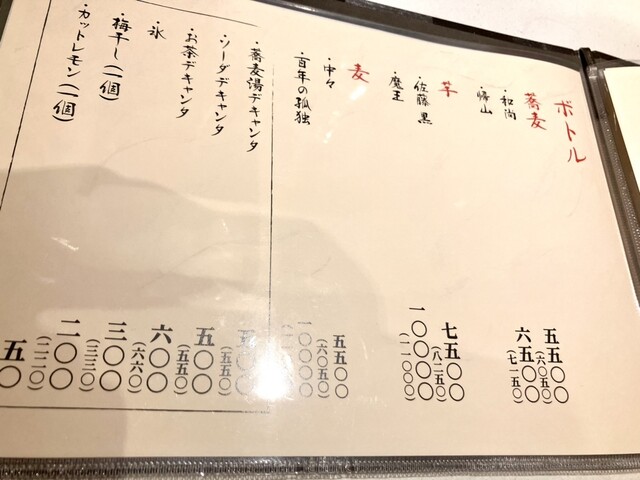 ボトル
蕎麦
・和尚 五五〇〇
(六〇五〇)
・帰山 六五〇〇
(七一五〇)
芋
・佐藤 黒 七五〇〇
(八二五〇)
・魔王 一〇〇〇〇
(一一〇〇〇)
麦
・中々 五五〇〇
(六〇五〇)
・百年の孤独 一〇〇〇〇
・蕎麦湯デキャンタ 五〇〇
(五五〇)
・ソーダデキャンタ 五〇〇
(五五〇)
・お茶デキャンタ 六〇〇
(六六〇)
・氷 三〇〇
(三三〇)
・梅干し(一個) 二〇〇
(二二〇)
・カットレモン(一個) 五〇